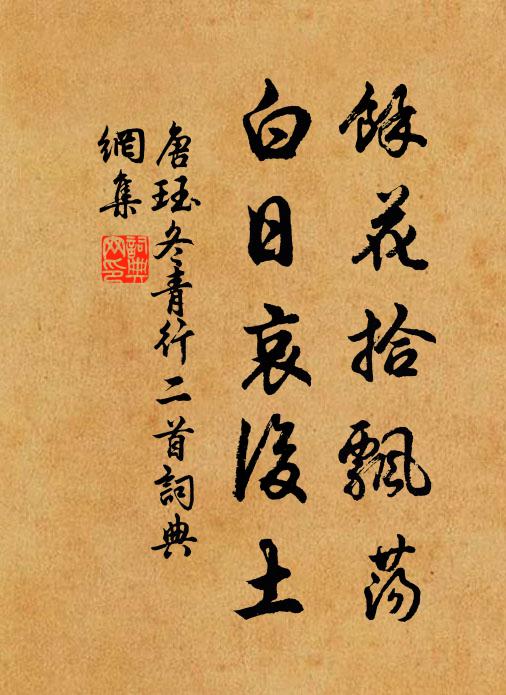 餘花拾飄蕩
白日哀後土
唐珏冬青行二首詞典
網集
詞典
网印